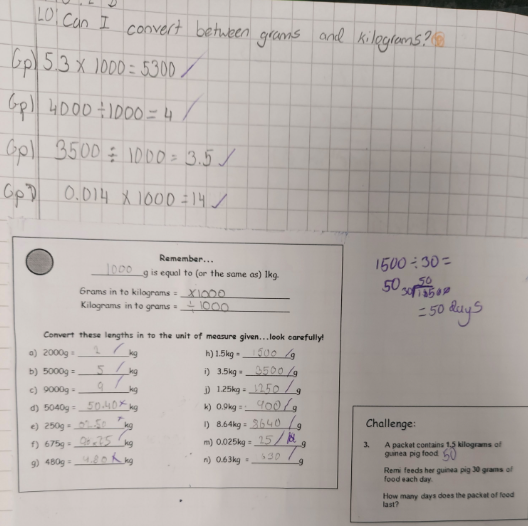 LO: Can I convert between grams and kilograms?
Gp) 5.3 × 1000 = 5300
Gp) 4000 ÷ 1000 = 4
Gp) 3500 ÷ 1000 = 3.5
Gp) 0.014 × 1000 = 14
Remember...
1000 g is equal to (or the same as) 1kg.
Grams in to kilograms = ×1000
Kilograms in to grams = ÷1000
Convert these lengths in to the unit of measure given...look carefully!
a) 2000g = 2 kg
b) 5000g = 5 kg
c) 9000g = 9 kg
d) 5040g = 50.40 kg
e) 250g = kg
f) 675g = kg
g) 480g = kg
h) 1.5kg = 1500 g
i) 3.5kg = 3500 g
j) 1.25kg = 1250 g
k) 0.9kg = 900 g
l) 8.64kg = 8640 g
m) 0.025kg = 25 g
n) 0.63kg = 630 g
1500 ÷ 30 =
50
50
30
= 50 days
Challenge:
3. A packet contains 1.5 kilograms of
guinea pig food. 50
Remi feeds her guinea pig 30 grams of
food each day.
How many days does the packet of food
last?